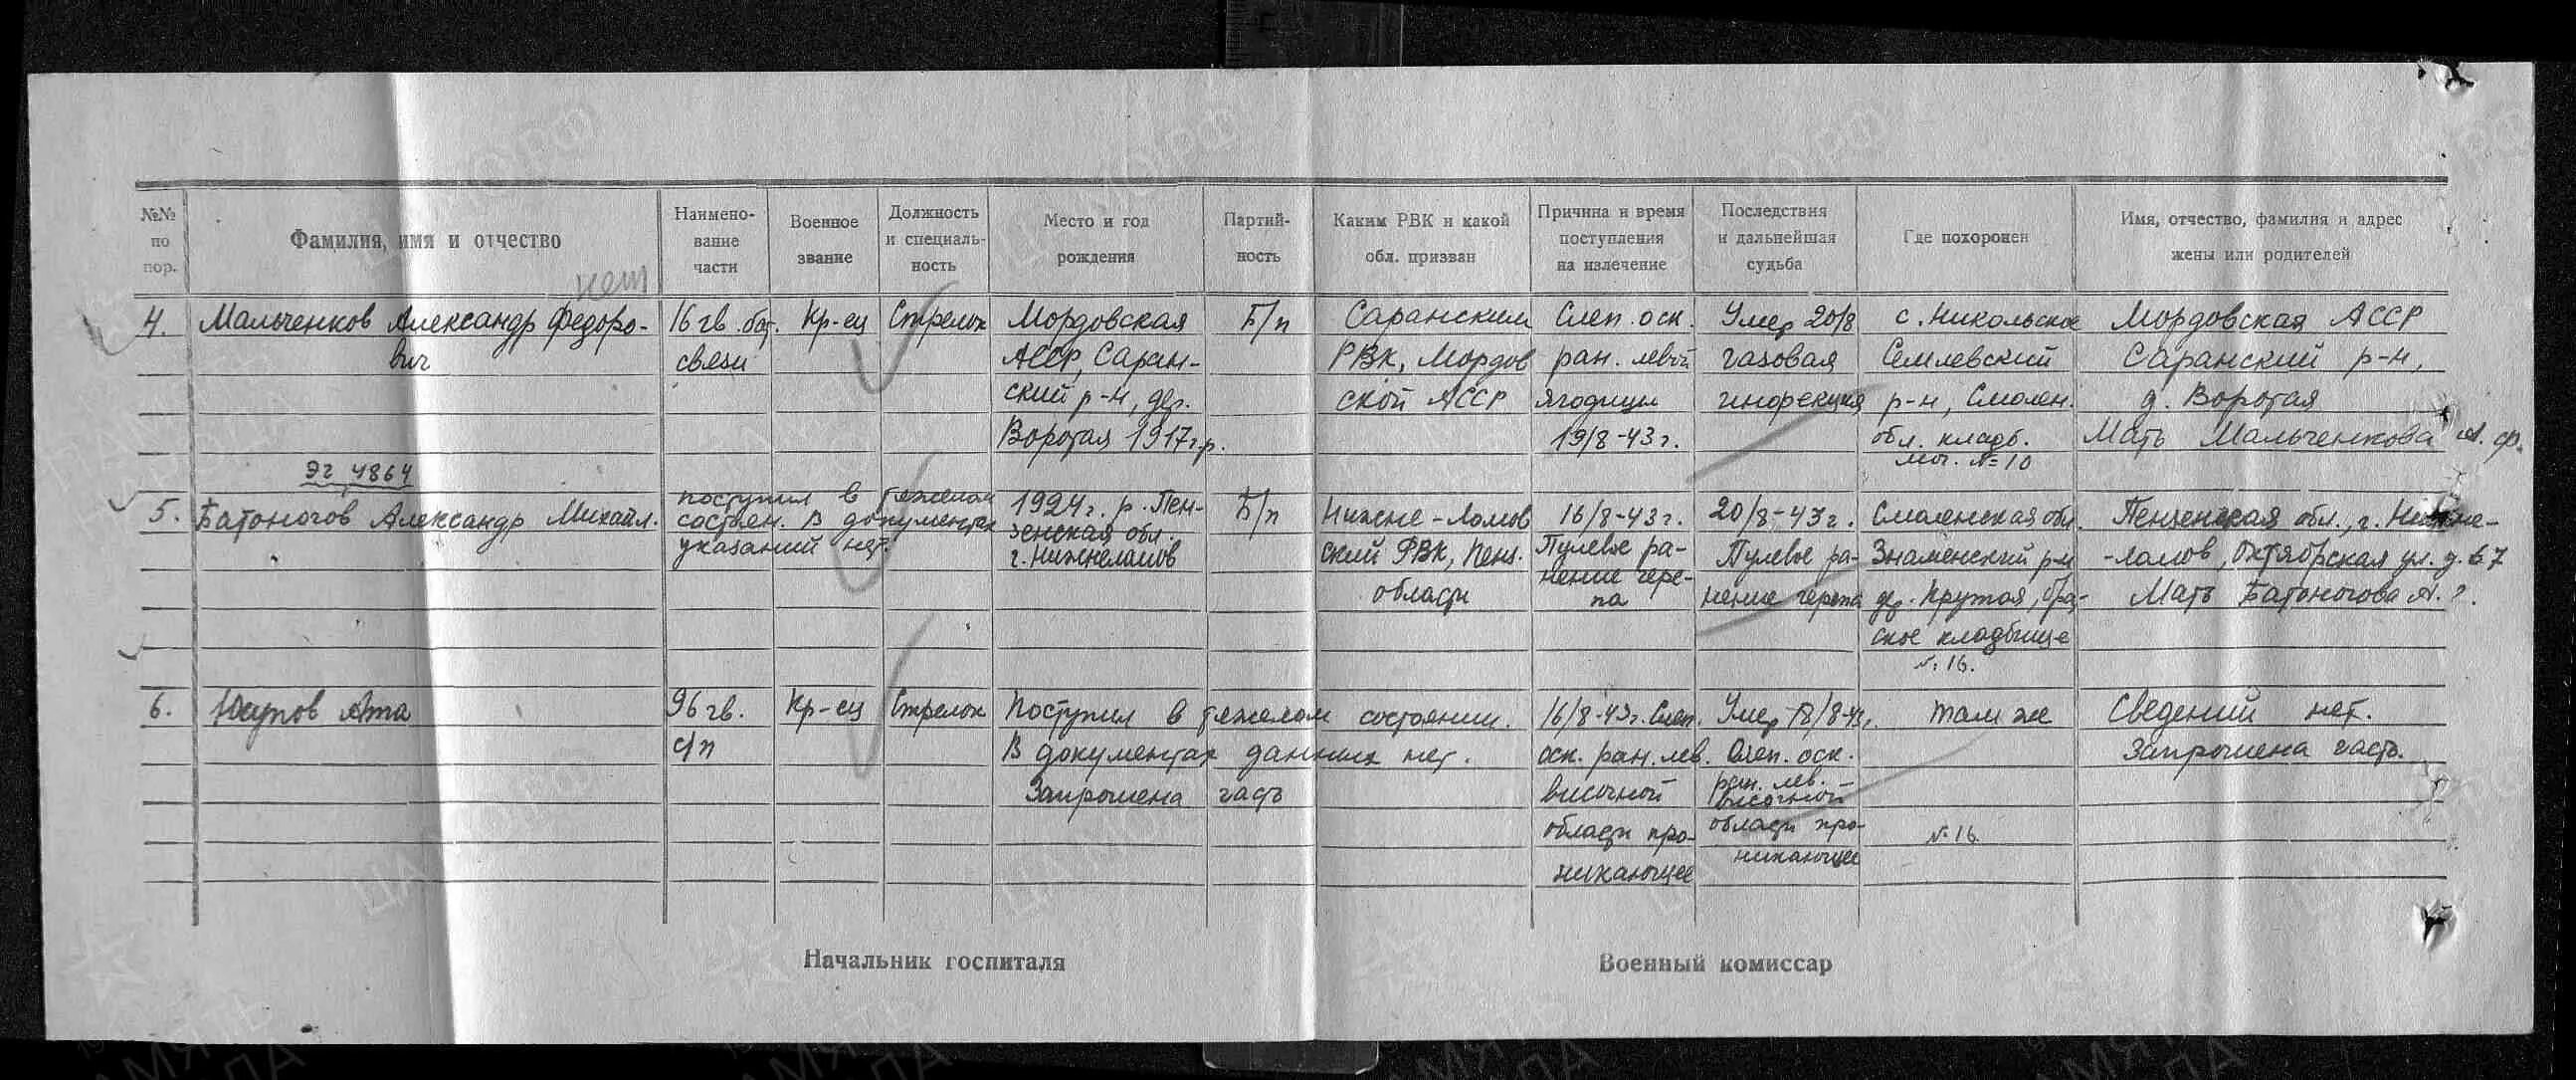 №№ по пор.
Фамилия, имя и отчество
Наимено-вание части
Военное звание
Должность и специаль-ность
Место и год рождения
Партий-ность
Каким РВК и какой обл. призван
Причина и время поступления на излечение
Последствия и дальнейшая судьба
Где похоронен
Имя, отчество, фамилия и адрес жены или родителей
нет
4.
Мальченков Александр Федоро-
вич
16 гв. бат.
связи
Кр-ец
Стрелок
Мордовская
АССР, Саран-
ский р-н, дер.
Воротая 1917г.р.
Б/п
Саранским
РВК, Мордов
ской АССР
Слеп. оск.
ран. левой
ягодицы
19/8-43г.
Умер 20/8
газовая
инфекция
с. Никольское
Семлевский
р-н, Смолен.
обл. кладб.
мог. №10
Мордовская АССР
Саранский р-н,
д. Воротая
Мать Мальченкова А. Ф.
ЭГ 4864
5.
Батоногов Александр Михайл.
поступил в тяжелом
состоян. В документах
указаний нет.
1924г. р. Пен-
зенская обл.
г. Нижнеломов
Б/п
Нижне-Ломов
ский РВК, Пенз.
области
16/8-43г.
Пулевое ра-
нение чере-
па
20/8-43г.
Пулевое ра-
нение черепа
Смоленская обл.
Знаменский р-н
др. Крутая, брат-
ское кладбище
№16.
Пензенская обл., г. Нижне-
-ломов, Октябрская ул. д. 67
Мать Батоногова А. ?.
6.
Юсупов Ата
96 гв.
с/п
Кр-ец
Стрелок
Поступил в тяжелом состоянии.
В документах данных нет.
Запрошена часть
16/8-43г. Слеп.
оск. ран. лев.
височной
области про-
никающее
Умер 18/8-43г.
Слеп. оск.
ран. лев.
височной
области про-
никающее
там же
№16.
Сведений нет.
Запрошена часть.
Начальник госпиталя
Военный комиссар